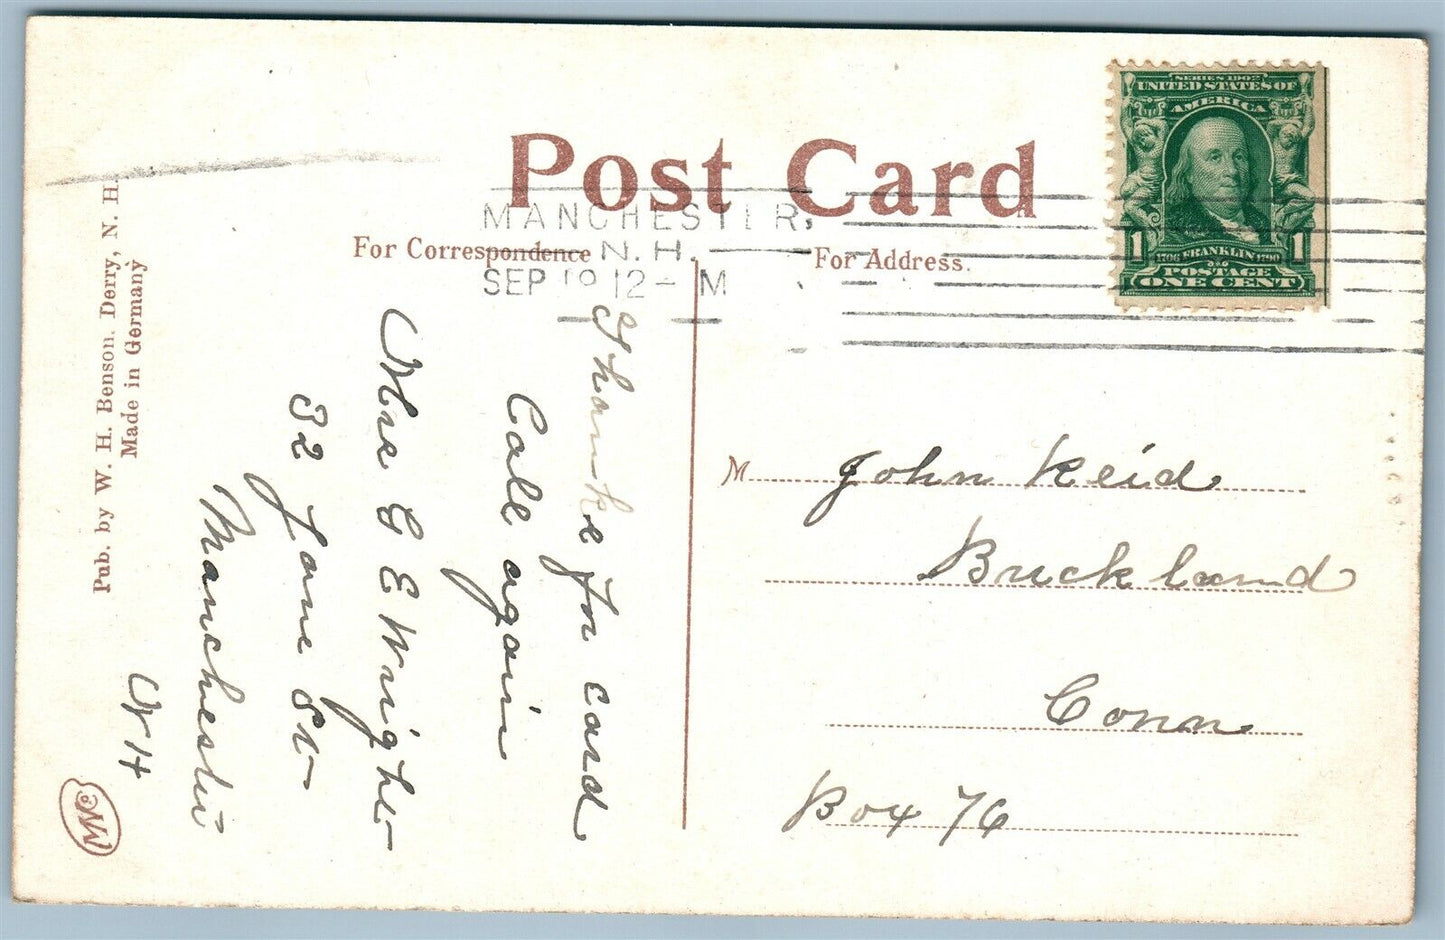 Post Card
For Correspondence
For Address.
MANCHESTER,
N. H.
SEP 19 12 - M
SERIES 1902
UNITED STATES OF
AMERICA
1 1
1706 FRANKLIN 1790
POSTAGE
ONE CENT
Pub. by W. H. Benson. Derry, N. H.
Made in Germany
Thanks for card
Call again
Mrs G E Wright
32 Jane St
Manchester
N H
M John Reid
Buckland
Conn
Box 76